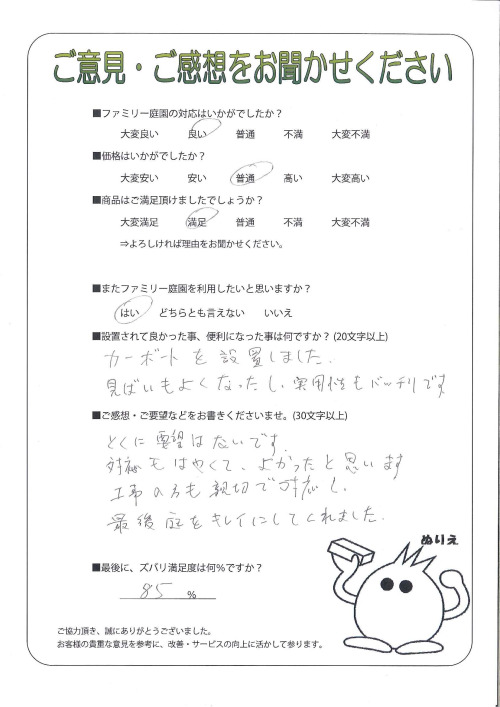 ご意見・ご感想をお聞かせください
■ファミリー庭園の対応はいかがでしたか？
大変良い 良い 普通 不満 大変不満
■価格はいかがでしたか？
大変安い 安い 普通 高い 大変高い
■商品はご満足頂けましたでしょうか？
大変満足 満足 普通 不満 大変不満
⇒よろしければ理由をお聞かせください。
■またファミリー庭園を利用したいと思いますか？
はい どちらとも言えない いいえ
■設置されて良かった事、便利になった事は何ですか？(20文字以上)
カーポートを設置しました.
見ばいもよくなったし、実用性もバッチリです
■ご感想・ご要望などをお書きくださいませ。(30文字以上)
とくに要望はないです.
対応もはやくて、よかったと思います
工事の方も親切で対応し、
最後庭をキレイにしてくれました.
ぬりえ
■最後に、ズバリ満足度は何％ですか？
85 %
ご協力頂き、誠にありがとうございました。
お客様の貴重な意見を参考に、改善・サービスの向上に活かして参ります。